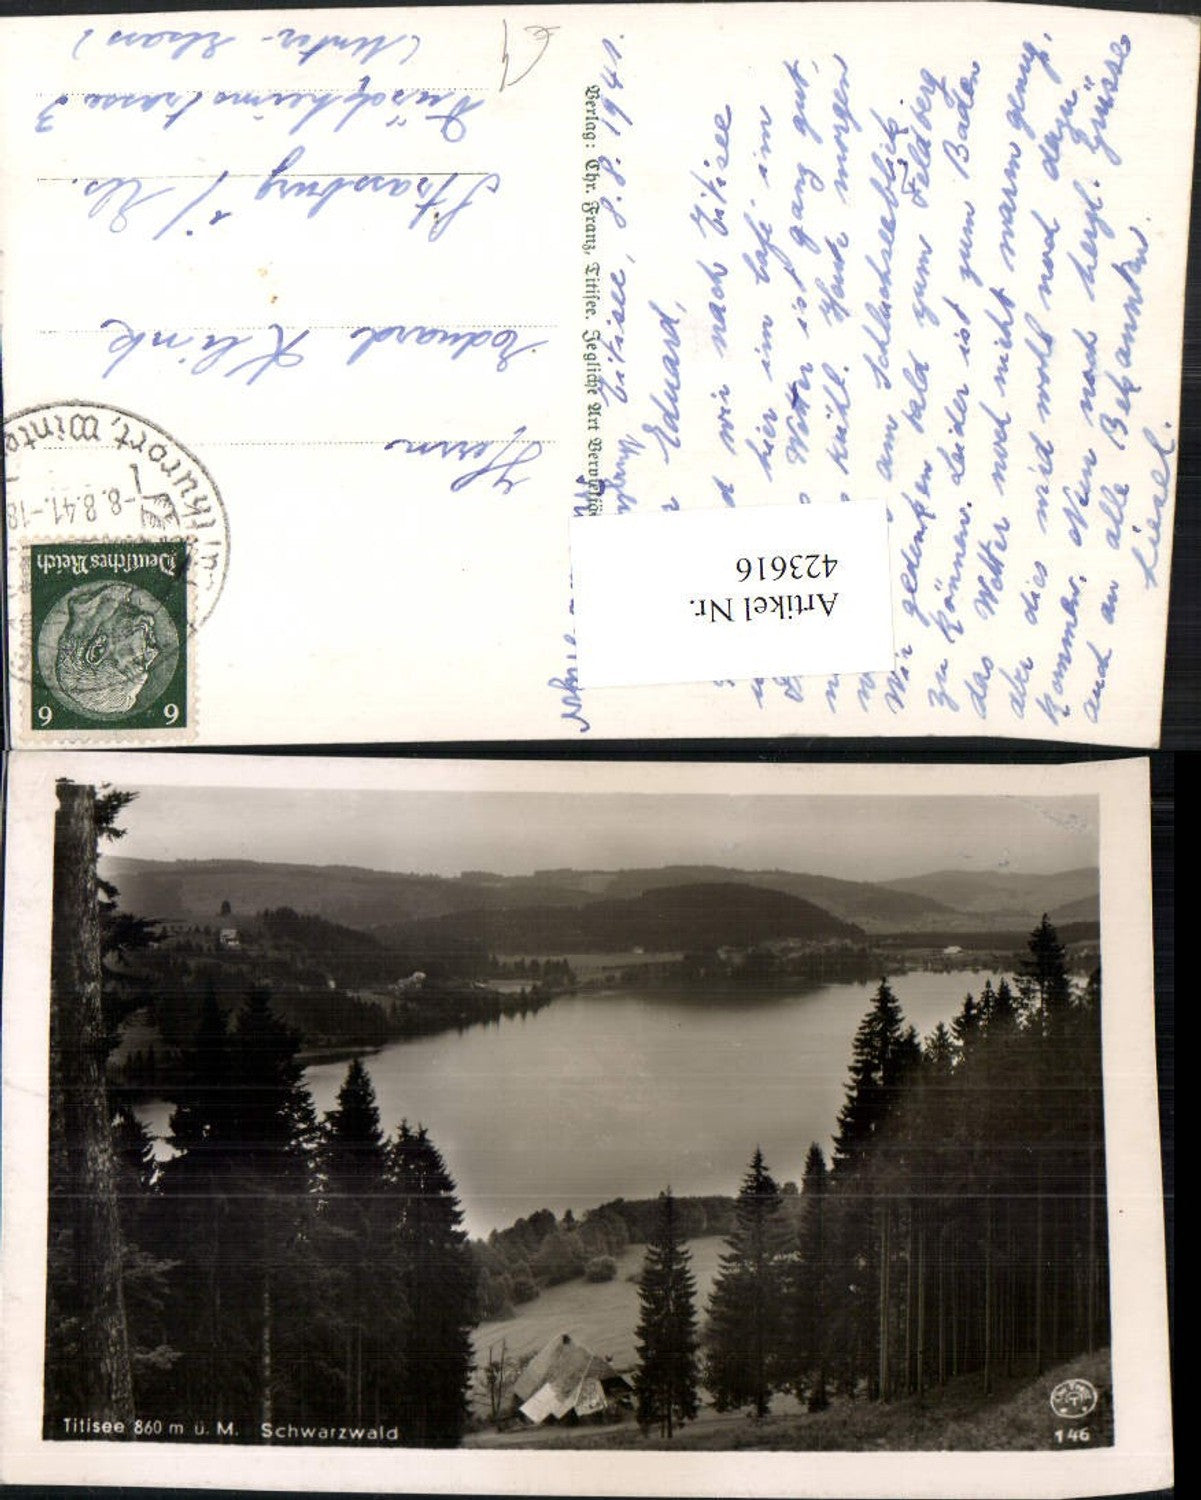 Titisee, 8.8.1941.
Eduard,
wir nach Titisee
hier im Café im
Wetter ist ganz gut,
kühl. Heute morgen
am Schluchseeblick.
Wir gedenken bald zum Feldberg
zu können. Leider ist zum Baden
das Wetter noch nicht warm genug,
aber dies wird wohl noch dazu
kommen. Nun noch herzl. Grüsse
auch an alle Bekannten.
Liesel.
Artikel Nr.
423616
Verlag: Chr. Franz, Titisee. Jegliche Art
Herrn
Eduard Klink
Strassburg i/ Els.
(Unter-Elsass)
Deutsches Reich
6 6
-8.8.41.-18
Titisee 860 m ü. M. Schwarzwald
146